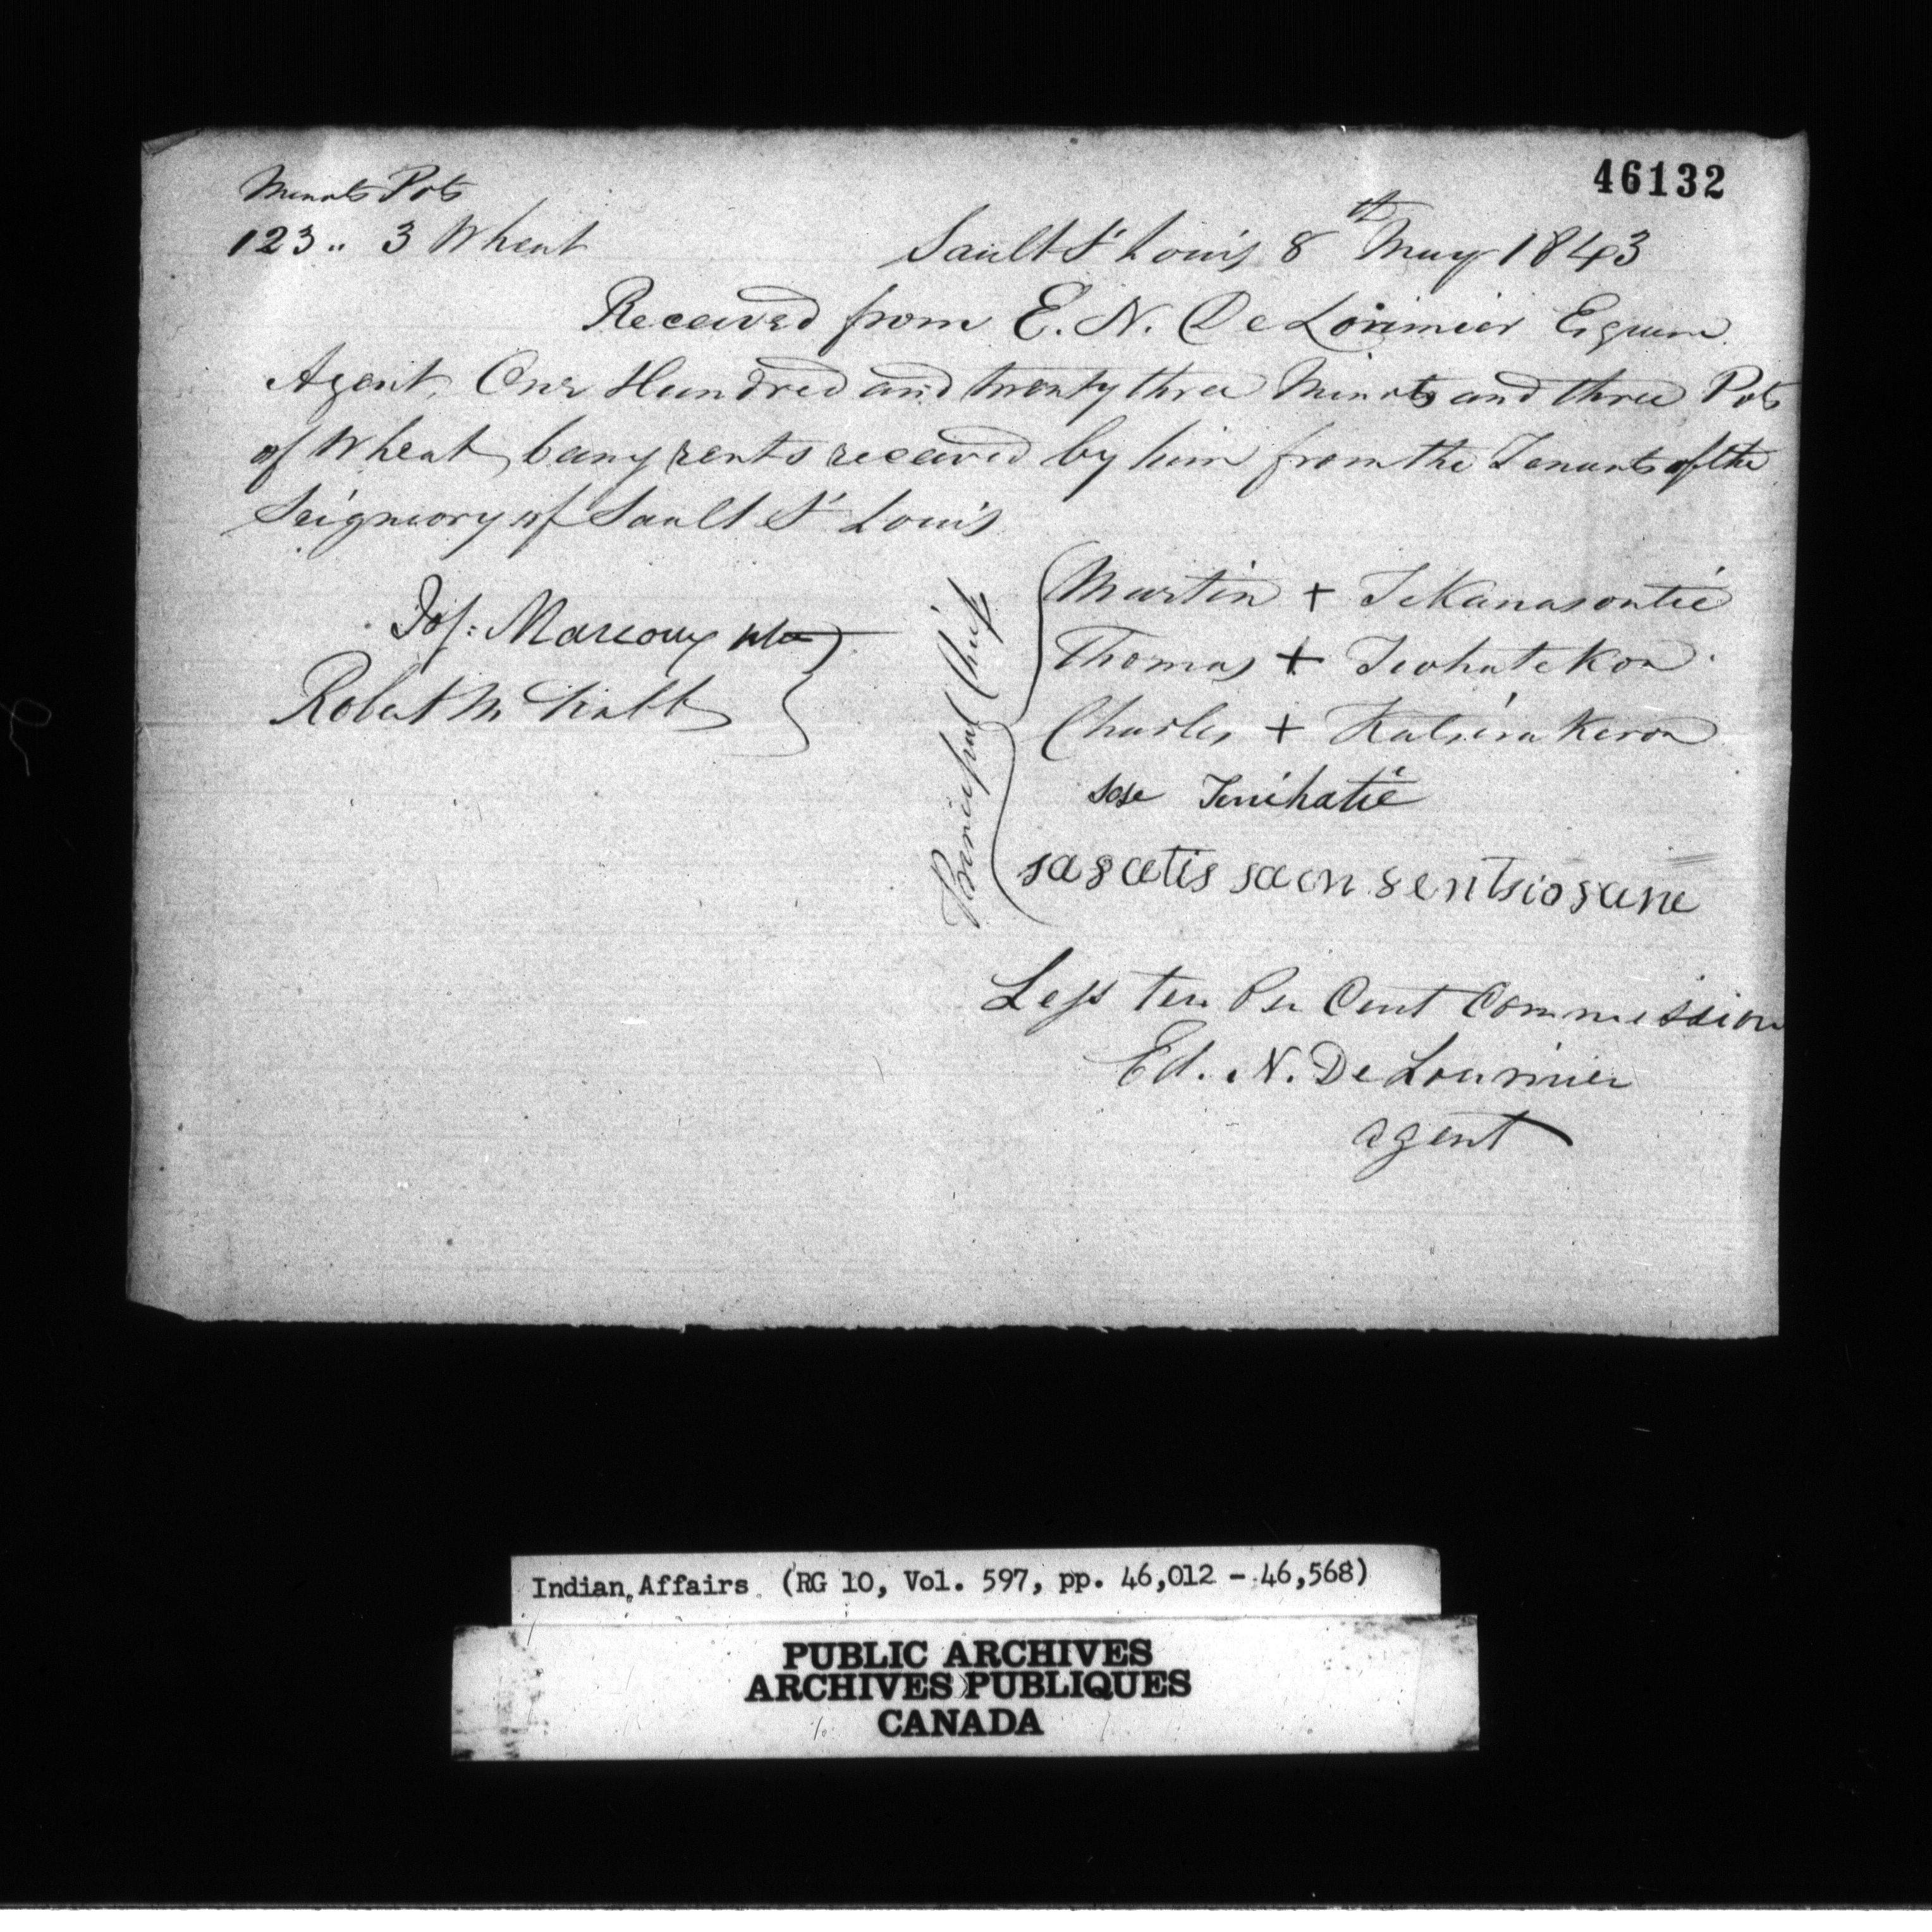 46132
Minots Pots
123 .. 3 Wheat
Sault St Louis 8th May 1843
Received from E. N. De Lorimier Esquire
Agent, One Hundred and twenty three Minots and three Pots
of Wheat, being rents received by him from the Tenants of the
Seigneory of Sault St Louis
Jos: Marcoux ptre
Robert M
Principal Chiefs
Martin + Tekanasontie
Thomas + Teohatekon
Charles + Katsirakeron
sose Tenihatie
sa8atis saon8entsio8ane
Less ten Per Cent Commission
Ed. N. De Lorimier
agent
Indian Affairs (RG 10, Vol. 597, pp. 46,012 - 46,568)
PUBLIC ARCHIVES
ARCHIVES PUBLIQUES
CANADA